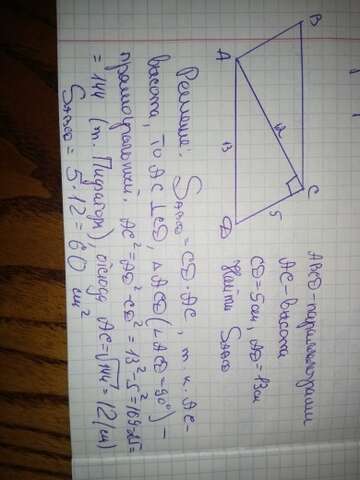 B
A
12
13
C
5
D
ABCD-параллелограмм
AC-высота
CD=5см, AD=13см
Найти S ABCD
Решение: S ABCD = CD·AC, т.к. AC-
высота, то AC⊥CD, △ACD(∠ACD=90°)-
прямоугольный. AC²=AD²-CD²=13²-5²=169-25=
=144 (т. Пифагора), отсюда AC=√144=12(см)
S ABCD= 5·12=60 см²